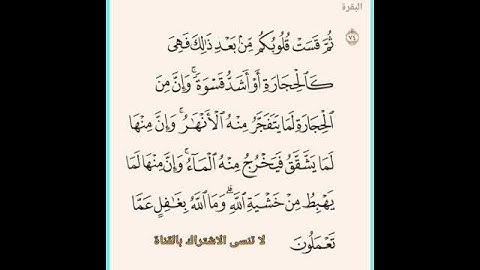 البقرة
ثُمَّ قَسَتْ قُلُوبُكُم مِّنۢ بَعْدِ ذَٰلِكَ فَهِىَ ٧٤
كَٱلْحِجَارَةِ أَوْ أَشَدُّ قَسْوَةً ۚ وَإِنَّ مِنَ
ٱلْحِجَارَةِ لَمَا يَتَفَجَّرُ مِنْهُ ٱلْأَنْهَـٰرُ ۚ وَإِنَّ مِنْهَا
لَمَا يَشَّقَّقُ فَيَخْرُجُ مِنْهُ ٱلْمَآءُ ۚ وَإِنَّ مِنْهَا لَمَا
يَهْبِطُ مِنْ خَشْيَةِ ٱللَّهِ ۗ وَمَا ٱللَّهُ بِغَـٰفِلٍ عَمَّا
تَعْمَلُونَ
لا تنسى الاشتراك بالقناة